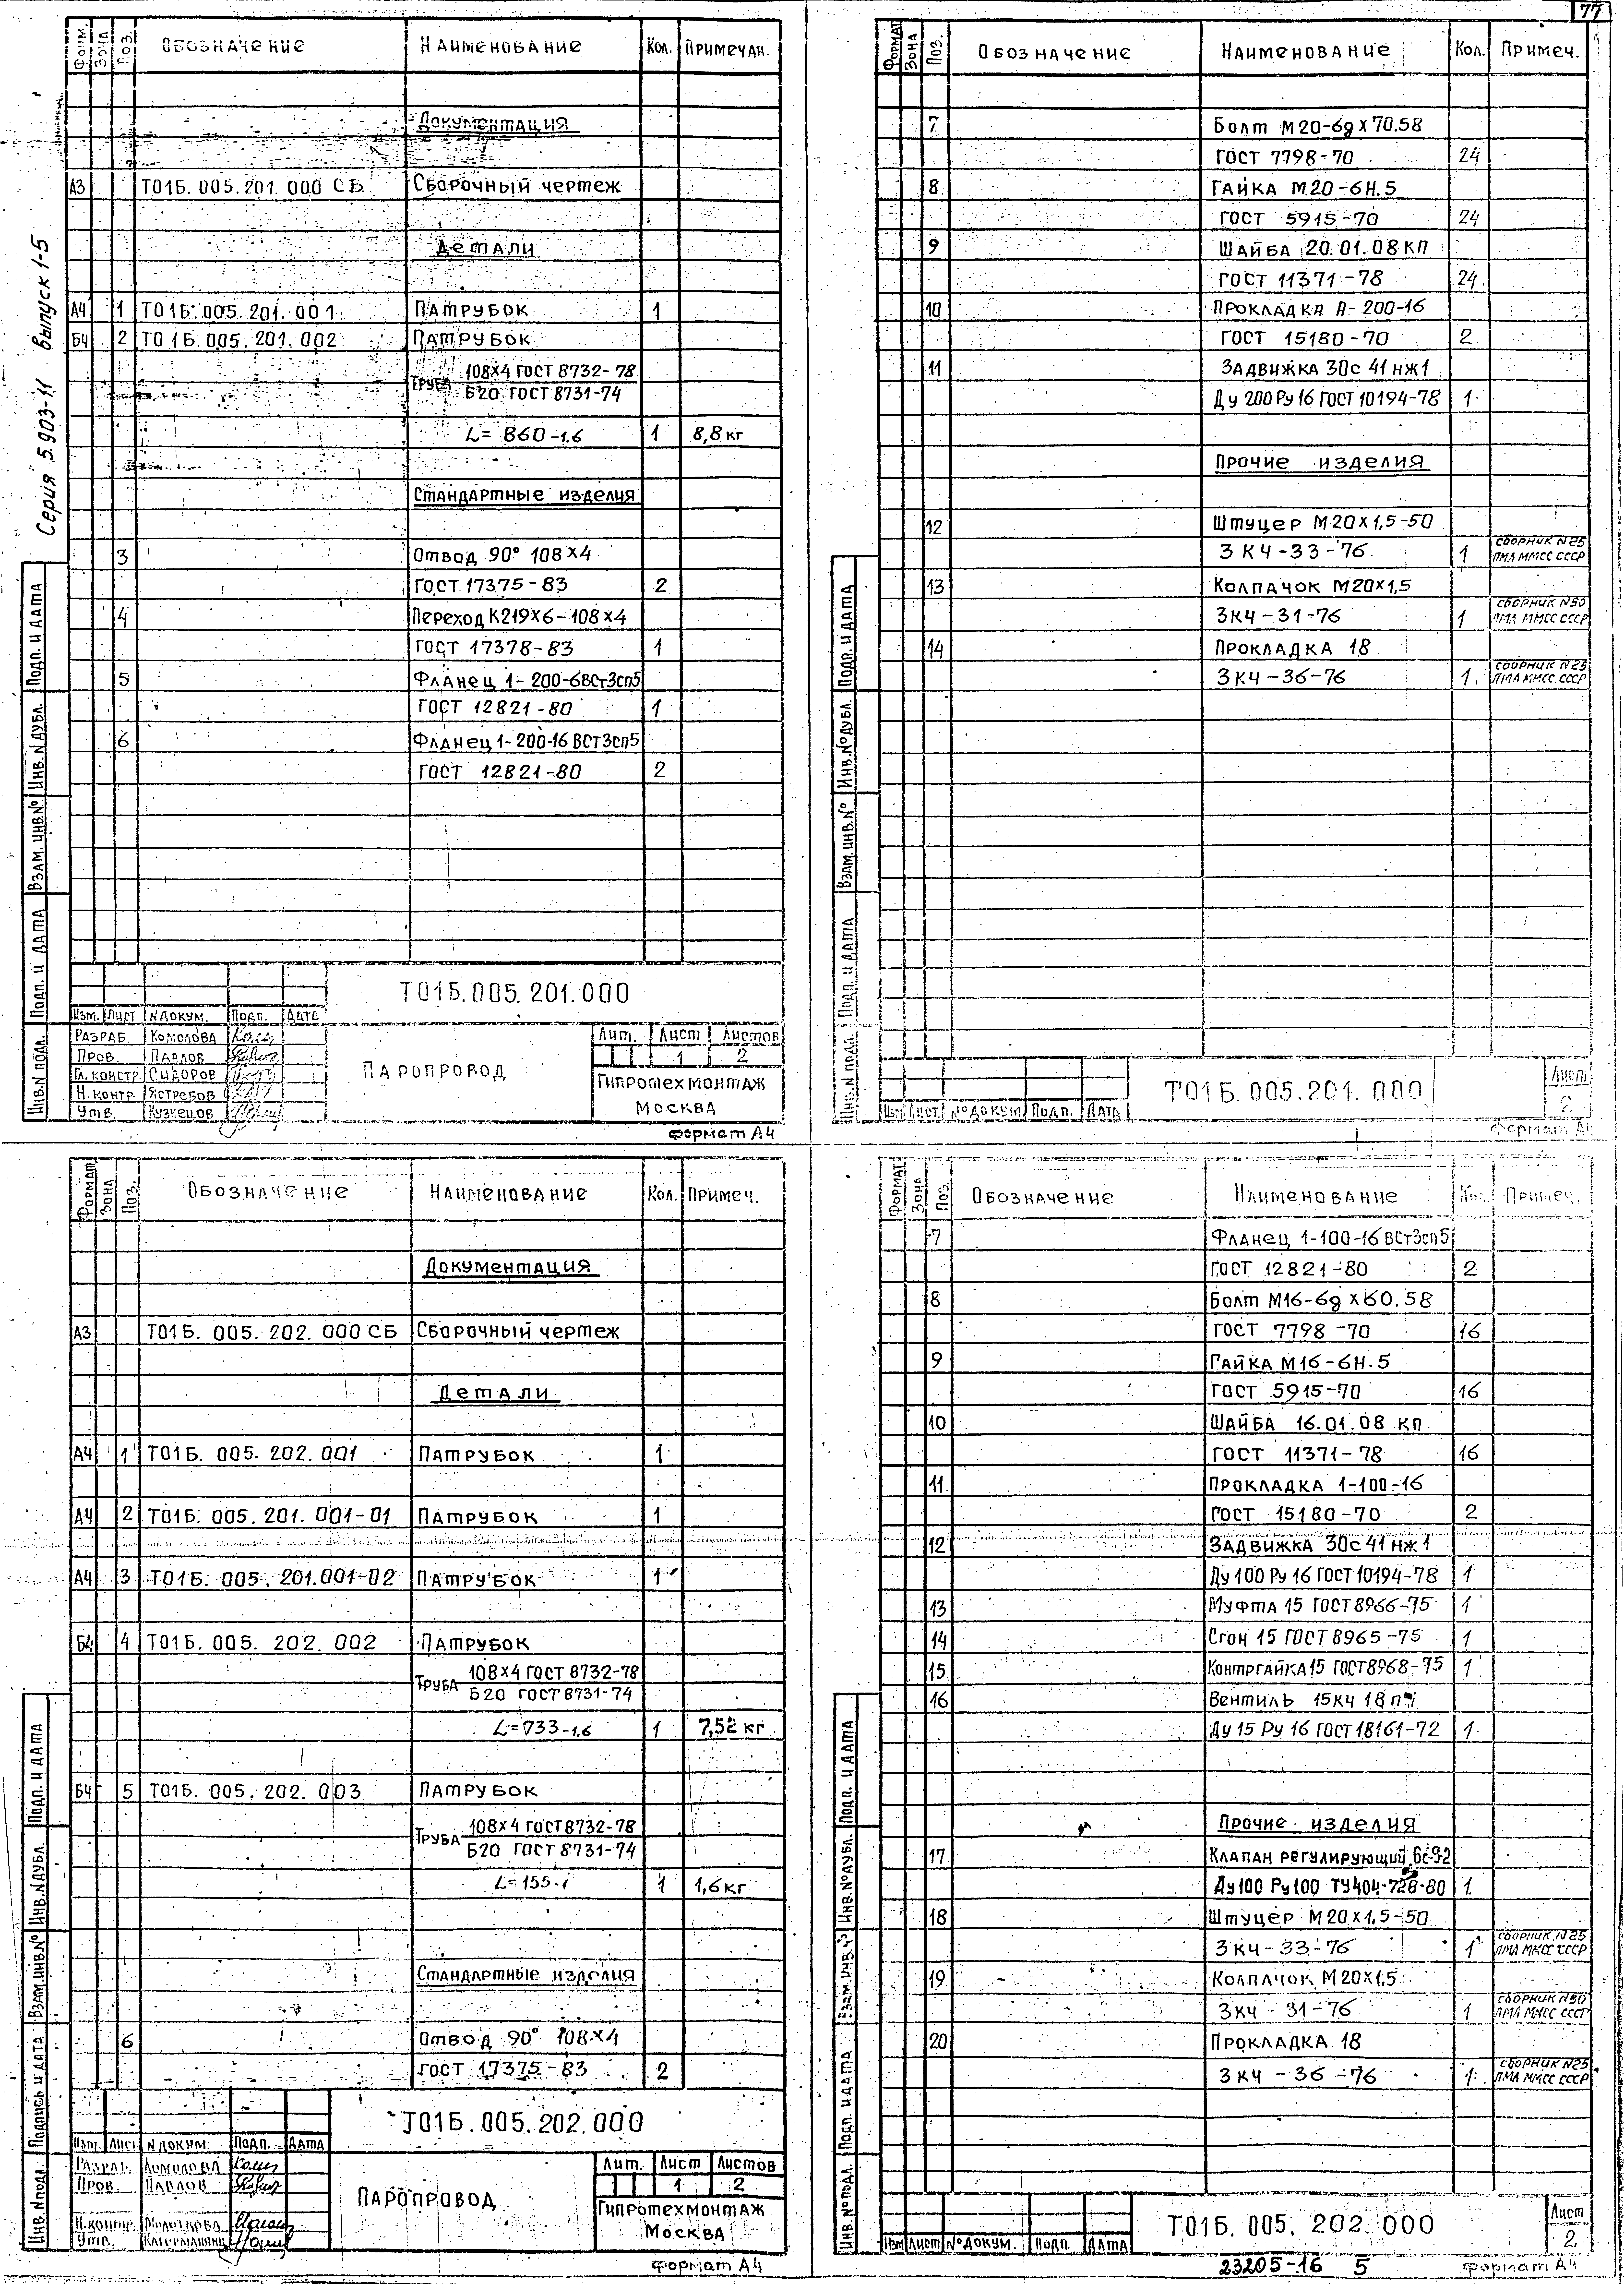 77
Серия 5.903-11 выпуск 1-5
Форм. Зона Поз. Обозначение Наименование Кол. Примечан.
Документация
А3 Т01Б.005.201.000 СБ Сборочный чертеж
Детали
А4 1 Т01Б.005.201.001 Патрубок 1
Б4 2 Т01Б.005.201.002 Патрубок
Труба 108х4 ГОСТ 8732-78
Б20 ГОСТ 8731-74
L=860-1.6 1 8,8 кг
Стандартные изделия
3 Отвод 90° 108х4
ГОСТ 17375-83 2
4 Переход К219х6-108х4
ГОСТ 17378-83 1
5 Фланец 1-200-6ВСт3сп5
ГОСТ 12821-80 1
6 Фланец 1-200-16 ВСт3сп5
ГОСТ 12821-80 2
Подп. и дата
Инв.N дубл.
Взам.инв.N°
Подп. и дата
Инв.N подл.
Т01Б.005.201.000
Изм. Лист N докум. Подп. Дата
Разраб. Комолова
Пров. Павлов
Гл.констр. Сидоров
Н.контр. Ястребов
Утв. Кузнецов
Паропровод
Лит. Лист Листов
1 2
Гипротехмонтаж
Москва
формат А4
Формат Зона Поз. Обозначение Наименование Кол. Примеч.
7 Болт М20-6gх70.58
ГОСТ 7798-70 24
8 Гайка М20-6Н.5
ГОСТ 5915-70 24
9 Шайба 20.01.08 кп
ГОСТ 11371-78 24
10 Прокладка А-200-16
ГОСТ 15180-70 2
11 Задвижка 30с 41 нж1
Ду 200 Ру16 ГОСТ 10194-78 1
Прочие изделия
12 Штуцер М20х1,5-50
3 КЧ-33-76 1 сборник N25 ПМА ММСС СССР
13 Колпачок М20х1,5
3КЧ-31-76 1 сборник N50 ПМА ММСС СССР
14 Прокладка 18
3КЧ-36-76 1 сборник N25 ПМА ММСС СССР
Подп. и дата
Инв.N°дубл.
Взам.инв.N°
Подп. и дата
Инв.N подл.
Изм Лист N°докум. Подп. Дата
Т01Б.005.201.000
Лист
2
формат А4
Формат Зона Поз. Обозначение Наименование Кол. Примеч.
Документация
А3 Т01Б.005.202.000 СБ Сборочный чертеж
Детали
А4 1 Т01Б.005.202.001 Патрубок 1
А4 2 Т01Б.005.201.001-01 Патрубок 1
А4 3 Т01Б.005.201.001-02 Патрубок 1
Б4 4 Т01Б.005.202.002 Патрубок
Труба 108х4 ГОСТ 8732-78
Б20 ГОСТ 8731-74
L=733-1,6 1 7,52 кг
Б4 5 Т01Б.005.202.003 Патрубок
Труба 108х4 ГОСТ 8732-78
Б20 ГОСТ 8731-74
L=155-1 1 1,6 кг
Стандартные изделия
6 Отвод 90° 108х4
ГОСТ 17375-83 2
Подп. и дата
Инв.N дубл.
Взам.инв.N°
Подпись и дата
Инв.N подл.
Т01Б.005.202.000
Изм. Лист N докум. Подп. Дата
Разраб. Комолова
Пров. Павлов
Н.контр.
Утв.
Паропровод
Лит. Лист Листов
1 2
Гипротехмонтаж
Москва
формат А4
Формат Зона Поз. Обозначение Наименование Кол. Примеч.
7 Фланец 1-100-16 ВСт3сп5
ГОСТ 12821-80 2
8 Болт М16-6gх60.58
ГОСТ 7798-70 16
9 Гайка М16-6Н.5
ГОСТ 5915-70 16
10 Шайба 16.01.08 кп
ГОСТ 11371-78 16
11 Прокладка 1-100-16
ГОСТ 15180-70 2
12 Задвижка 30с 41 нж1
Ду 100 Ру 16 ГОСТ 10194-78 1
13 Муфта 15 ГОСТ 8966-75 1
14 Сгон 15 ГОСТ 8965-75 1
15 Контргайка 15 ГОСТ 8968-75 1
16 Вентиль 15кч 18
Ду 15 Ру 16 ГОСТ 18161-72 1
Прочие изделия
17 Клапан регулирующий 6с-9-2
Ду100 Ру100 ТУ404-728-80 1
18 Штуцер М20х1,5-50
3 КЧ-33-76 1 сборник N25 ПМА ММСС СССР
19 Колпачок М20х1,5
3КЧ-31-76 1 сборник N50 ПМА ММСС СССР
20 Прокладка 18
3КЧ-36-76 1 сборник N25 ПМА ММСС СССР
Подп. и дата
Инв.N°дубл.
Взам.инв.N°
Подп. и дата
Инв.N°подл.
Изм Лист N°докум. Подп. Дата
Т01Б.005.202.000
Лист
2
23205-16 5
формат А4